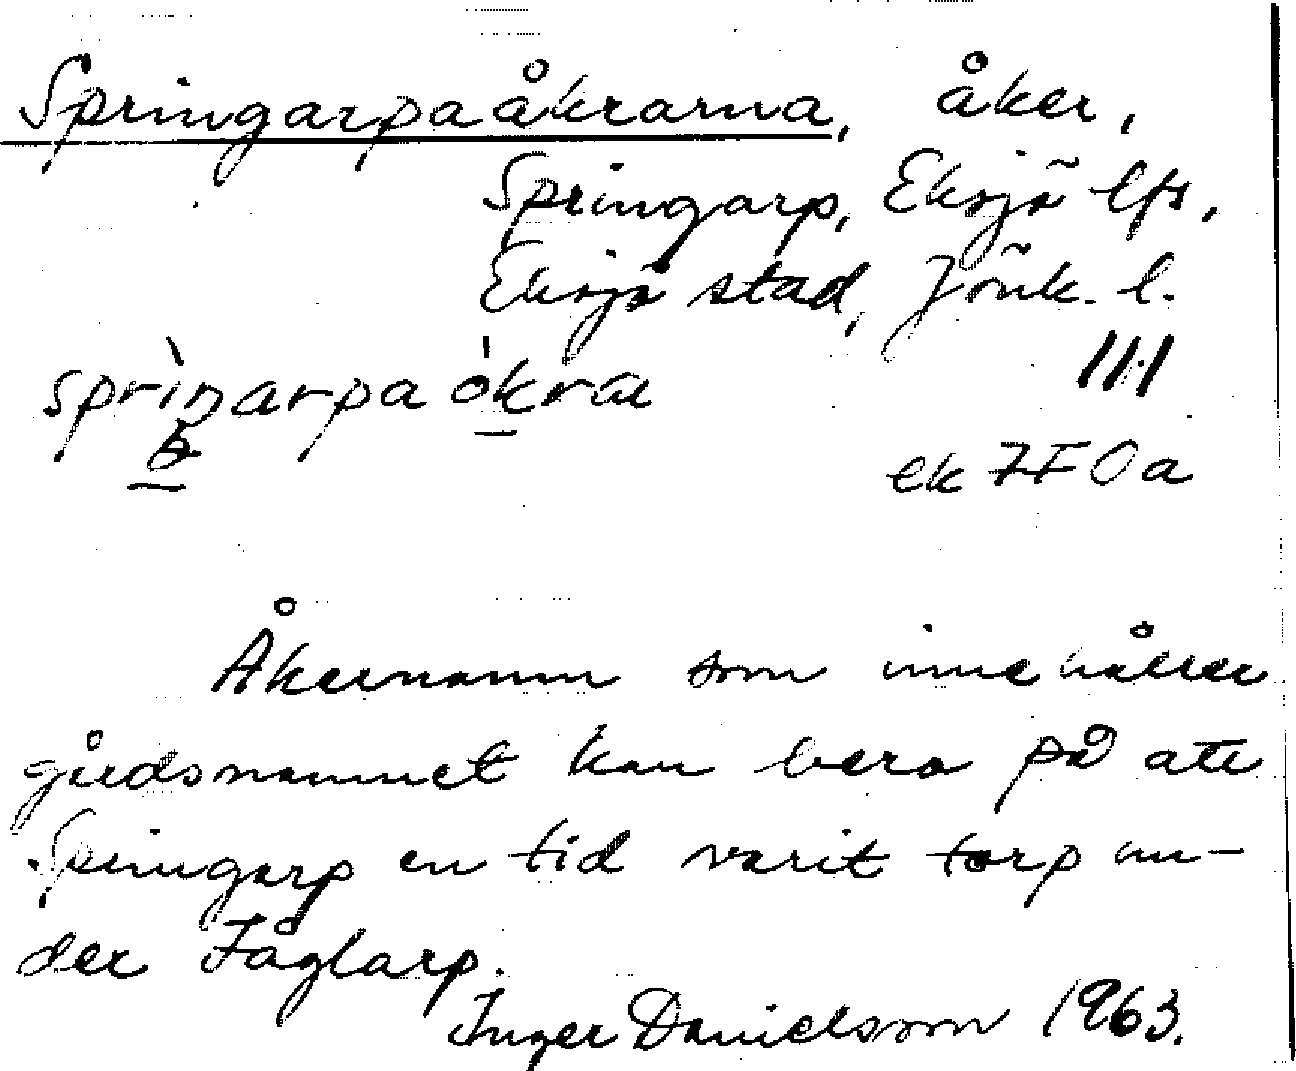 Springarpaåkrarna, åker,
Springarp, Eksjö lfs,
Eksjö stad, Jönk. l.
sprìŋarpa ókra
ek 7F 0a
Åkernamn som innehåller
gårdsnamnet kan bero på att
Springarp en tid varit torp un-
der Fåglarp.
Inger Danielsson 1963.